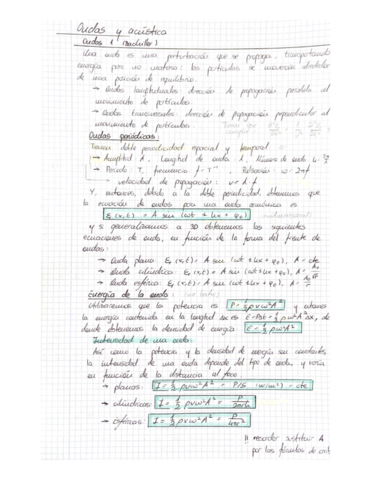 Ondas y acústica
Ondas 1 (
Una onda es una perturbación que se propaga, transportando
energía pero no materia: las partículas se mueven alrededor
de una posición de equilibrio.
→ Ondas longitudinales: dirección de propagación paralela al
movimiento de partículas.
→ Ondas transversales: dirección de propagación perpendicular al
movimiento de partículas.
Ondas periódicas:
Tienen doble periodicidad espacial y temporal
→ Amplitud A, Longitud de onda: λ, Número de onda
→ Período: T, frecuencia f = T⁻¹, Relación: ω = 2πf
velocidad de propagación: v = λ f
Y, entonces, debido a la doble periodicidad, obtenemos que
la ecuación de ondas para una onda armónica es
E(x,t) = A sin (ωt ± kx + φ₀)
y si generalizamos a 3D obtenemos las siguientes
ecuaciones de onda, en función de la forma del frente de
ondas:
→ Onda plana: E(x,t) = A sin (ωt ± kx + φ₀), A = cte
→ Onda cilíndrica: E(x,t) = A sin (ωt ± kx + φ₀), A =
→ Onda esférica: E(x,t) = A sin (ωt ± kx + φ₀), A =
Energía de la onda:
que la potencia es P = ½ ρvω²A² y entonces
la energía contenida en la longitud Δx es
donde obtenemos la densidad de energía
Intensidad de una onda:
Así como la potencia y la densidad de energía son constantes,
la intensidad de una onda depende del tipo de onda, y varía
en función de la distancia al foco:
→ planas: I = ½ ρvω²A² = P/S (W/m²) = cte
→ cilíndricas: I = ½ ρvω²A² =
→ esféricas: I = ½ ρvω²A² = P/4πr²
!! recordar sustituir A
por las fórmulas de